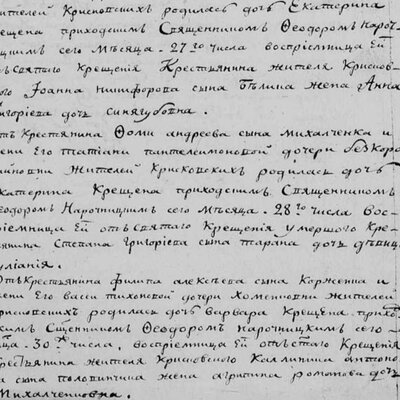 жителей Крисковскихъ родилась дочь Екатерина
крещена приходскимъ Священникомъ Феодоромъ Нароч-
ницкимъ сего Месяца. 27го числа восприемница Ей
отъ святаго Крещения Крестьянина жителя Крисков-
Иоанна Никифорова сына Белика жена Анна
Григориева дочь Синягубовна.
отъ Крестьянина Фомы андреева сына Михалченка и
жени Его татиани пантелеимоновой дочери
жителей Крисковскихъ родилась дочь
Екатерина Крещена приходскимъ Священникомъ
Феодоромъ Нарочницкимъ сего Месяца. 28го числа вос-
приемница Ей отъ святаго Крещения умершого Кре-
стьянина Стефана Григориева сына тарана дочь девица
улиания.
Отъ Крестьянина филипа алексеева сына Каржетна и
жени Его васси тихоновой дочери Хоменковни жителей
Крисковскихъ родилась дочь варвара Крещена приход-
скимъ Священникомъ Феодоромъ нарочницкимъ сего
Месяца. 30го числа. восприемница Ей отъ святаго Крещения
Крестьянина жителя Крисковского Каллиника антоно-
ва сына половинчика жена агрипина романова дочь
Михалченковна.